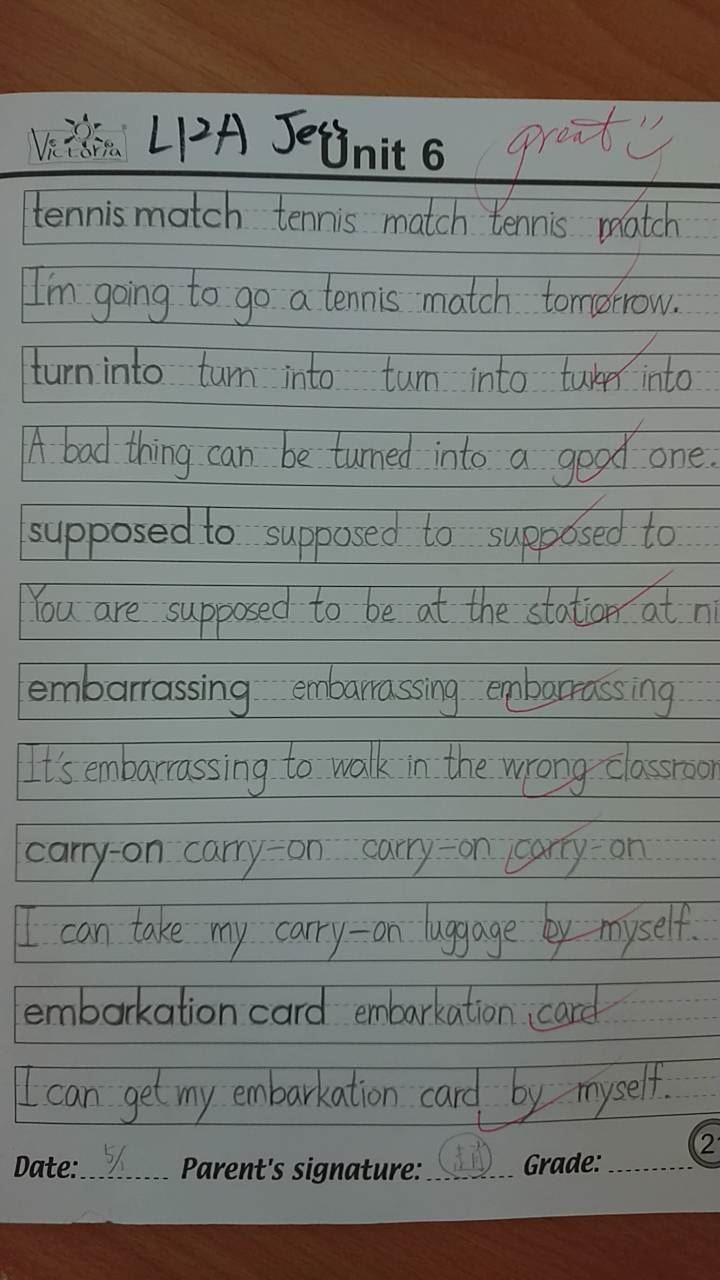 Victoria L12A Jess Unit 6 great
tennis match tennis match tennis match
I'm going to go a tennis match tomorrow.
turn into turn into turn into turn into
A bad thing can be turned into a good one.
supposed to supposed to supposed to
You are supposed to be at the station at ni
embarrassing embarrassing embarrassing
It's embarrassing to walk in the wrong classroom
carry-on carry-on carry-on carry-on
I can take my carry-on luggage by myself.
embarkation card embarkation card
I can get my embarkation card by myself.
Date: 5/1 Parent's signature: Grade: